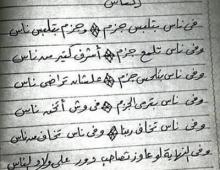 وفى ناس بتلبس جزم وجزم بتلبس ناس
وفى ناس تلمع جزم أشرف كتير من ناس
وفى ناس بتلحس جزم علشان تراضى ناس
وفى ناس بترمى الجزم فى وش أتخن ناس
وفى ناس تخاف ربنا وفى ناس تخاف من ناس
وفى النهاية لو عاوز تصاحب دور على ولاد الناس